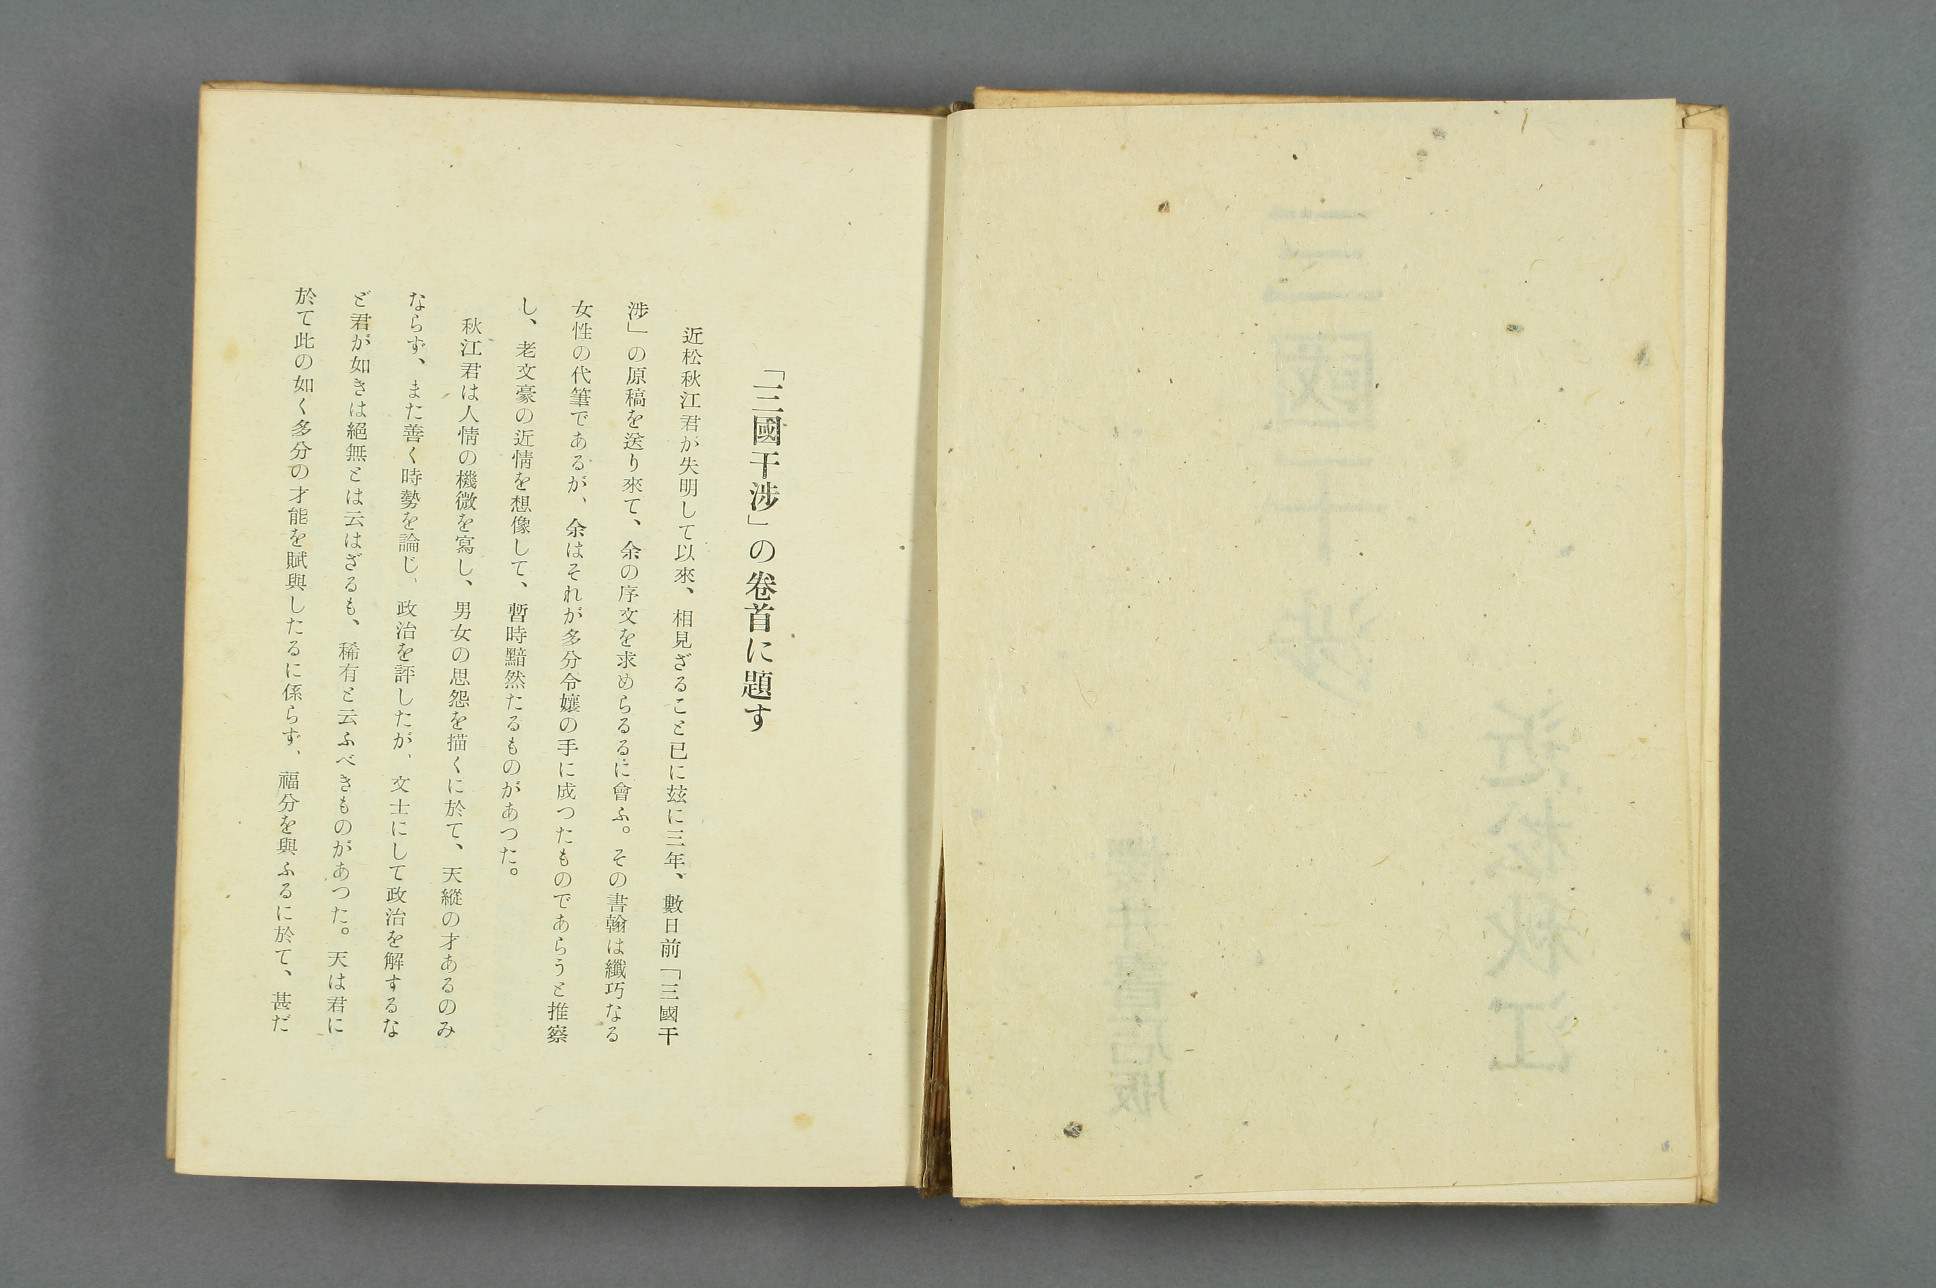 近松秋江
三國干渉
櫻井書店版
「三國干渉」の卷首に題す
近松秋江君が失明して以來、相見ざること已に玆に三年、數日前「三國干
渉」の原稿を送り來て、余の序文を求めらるるに會ふ。その書翰は纖巧なる
女性の代筆であるが、余はそれが多分令孃の手に成つたものであらうと推察
し、老文豪の近情を想像して、暫時黯然たるものがあつた。
秋江君は人情の機微を寫し、男女の思怨を描くに於て、天縱の才あるのみ
ならず、また善く時勢を論じ、政治を評したが、文士にして政治を解するな
ど君が如きは絕無とは云はざるも、稀有と云ふべきものがあつた。天は君に
於て此の如く多分の才能を賦與したるに係らず、福分を與ふるに於て、甚だ